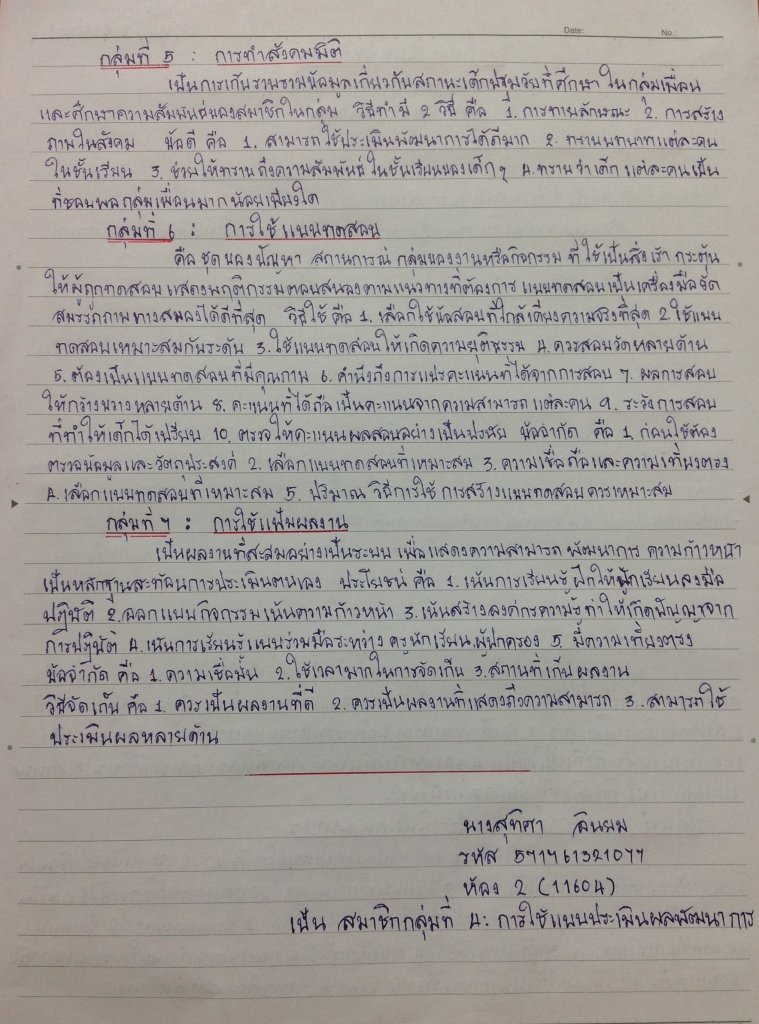 Date: No.:
กลุ่มที่ 5 : การทำสังคมมิติ
เป็นการเก็บรวบรวมข้อมูลเกี่ยวกับสถานะเด็กปฐมวัยที่ศึกษา ในกลุ่มเพื่อน
และศึกษาความสัมพันธ์ของสมาชิกในกลุ่ม วิธีทำมี 2 วิธี คือ 1. การทายลักษณะ 2. การสร้าง
ภาพในสังคม ข้อดี คือ 1. สามารถใช้ประเมินพัฒนาการได้ดีมาก 2. ทราบบทบาทแต่ละคน
ในชั้นเรียน 3. ช่วยให้ทราบถึงความสัมพันธ์ในชั้นเรียนของเด็กๆ 4. ทราบว่าเด็กแต่ละคนเป็น
ที่ชอบพอกลุ่มเพื่อนมากน้อยเพียงใด
กลุ่มที่ 6 : การใช้แบบทดสอบ
คือ ชุดของปัญหา สถานการณ์ กลุ่มของงานหรือกิจกรรม ที่ใช้เป็นสิ่งเร้า กระตุ้น
ให้ผู้ถูกทดสอบแสดงพฤติกรรมตอบสนองตามแนวทางที่ต้องการ แบบทดสอบเป็นเครื่องมือวัด
สมรรถภาพทางสมองได้ดีที่สุด วิธีใช้ คือ 1. เลือกใช้ข้อสอบที่ใกล้เคียงความจริงที่สุด 2. ใช้แบบ
ทดสอบเหมาะสมกับระดับ 3. ใช้แบบทดสอบให้เกิดความยุติธรรม 4. ควรสอบวัดหลายด้าน
5. ต้องเป็นแบบทดสอบที่มีคุณภาพ 6. คำนึงถึงการแปรคะแนนที่ได้จากการสอบ 7. ผลการสอบ
ให้กว้างขวางหลายด้าน 8. คะแนนที่ได้ถือเป็นคะแนนจากความสามารถแต่ละคน 9. ระวังการสอบ
ที่ทำให้เด็กได้เปรียบ 10. ตรวจให้คะแนนผลสอบอย่างเป็นปรนัย ข้อจำกัด คือ 1. ก่อนใช้ต้อง
ตรวจข้อมูลและวัตถุประสงค์ 2. เลือกแบบทดสอบที่เหมาะสม 3. ความเชื่อถือและความเที่ยงตรง
4. เลือกแบบทดสอบที่เหมาะสม 5. ปริมาณ วิธีการใช้ การสร้างแบบทดสอบควรเหมาะสม
กลุ่มที่ 7 : การใช้แฟ้มผลงาน
เป็นผลงานที่สะสมอย่างเป็นระบบ เพื่อแสดงความสามารถ พัฒนาการ ความก้าวหน้า
เป็นหลักฐานสะท้อนการประเมินตนเอง ประโยชน์ คือ 1. เน้นการเรียนรู้ฝึกให้นักเรียนลงมือ
ปฏิบัติ 2. ออกแบบกิจกรรมเน้นความก้าวหน้า 3. เน้นสร้างองค์กรความรู้ ทำให้เกิดปัญญาจาก
การปฏิบัติ 4. เน้นการเรียนรู้แบบร่วมมือระหว่าง ครู นักเรียน ผู้ปกครอง 5. มีความเที่ยงตรง
ข้อจำกัด คือ 1. ความเชื่อมั่น 2. ใช้เวลามากในการจัดเก็บ 3. สถานที่เก็บผลงาน
วิธีจัดเก็บ คือ 1. ควรเป็นผลงานที่ดี 2. ควรเป็นผลงานที่แสดงถึงความสามารถ 3. สามารถใช้
ประเมินผลหลายด้าน
นางสุทิศา
รหัส 571761321077
ห้อง 2 (11604)
เป็น สมาชิกกลุ่มที่ 4: การใช้แบบประเมินผลพัฒนาการ